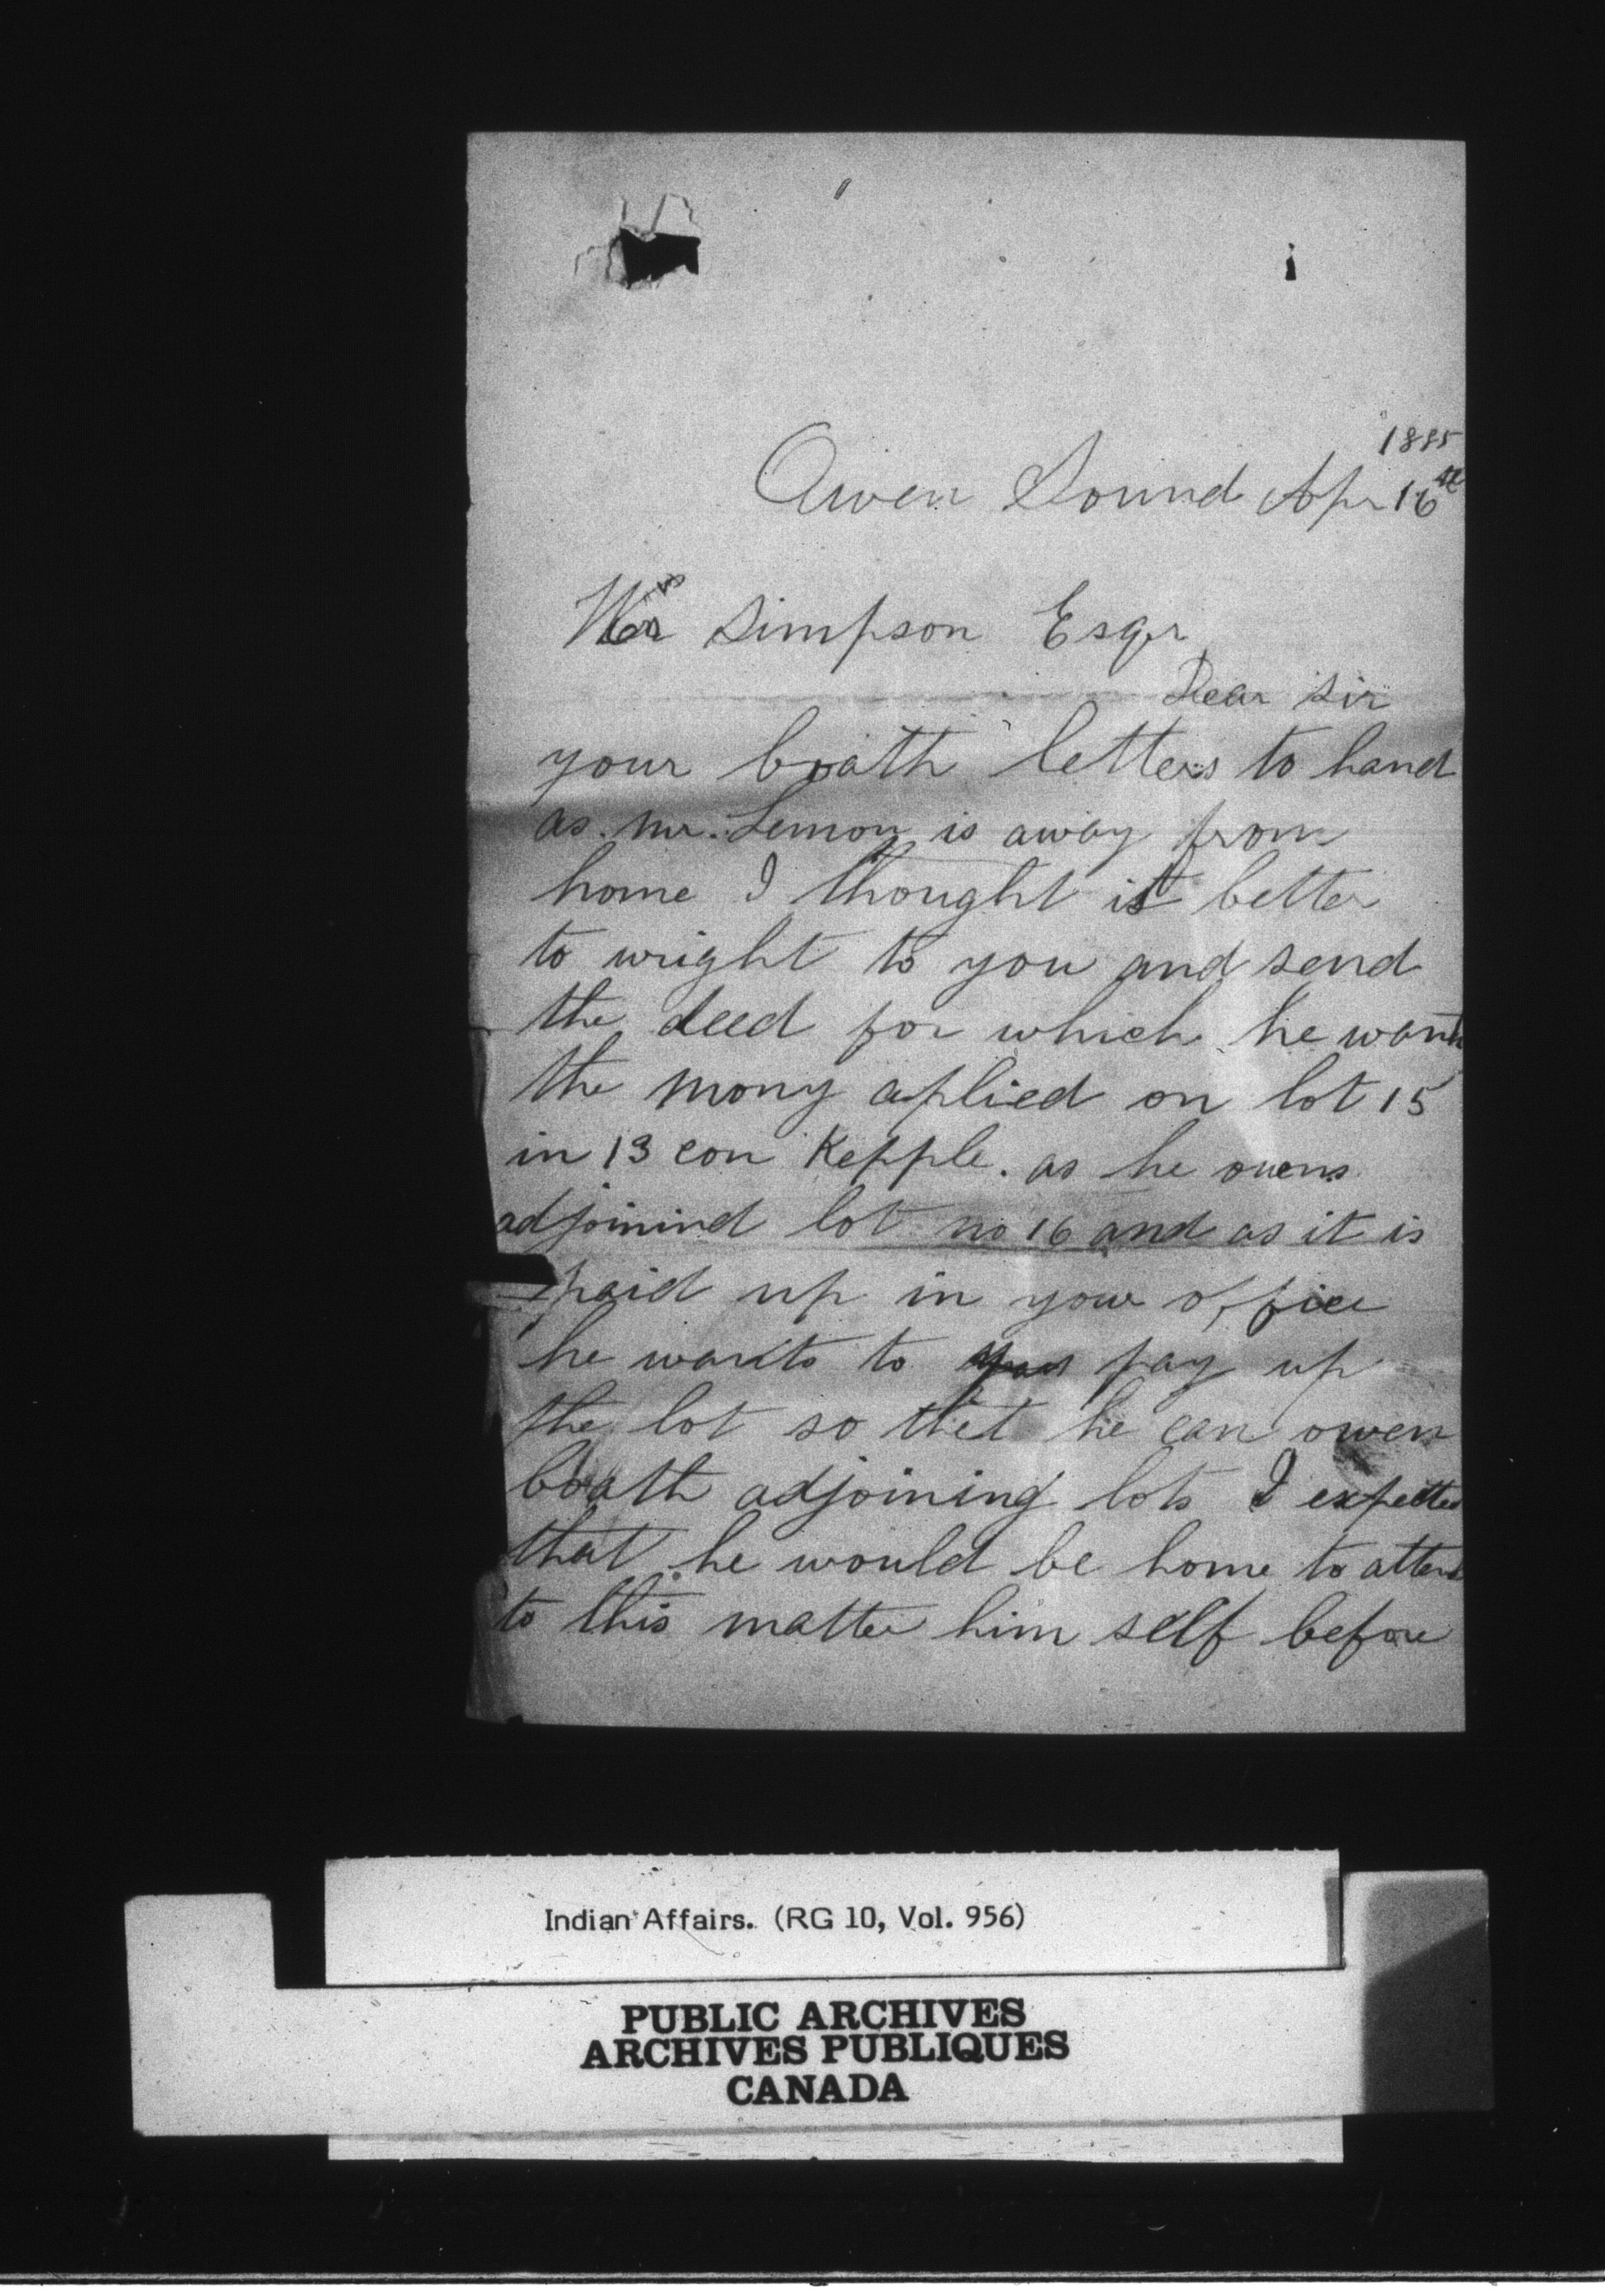 1885
Owen Sound Apr 16th
Wm Simpson Esqr
Dear Sir
your boath letters to hand
as mr. Lemon is away from
home I thought it better
to wright to you and send
the deed for which he wants
the mony aplied on lot 15
in 13 con Kepple. as he owens
adjoinind lot no 16 and as it is
paid up in your office
he wants to pay up
the lot so thet he can owen
boath adjoining lots I expected
that he would be home to attend
to this matter him self before
Indian Affairs. (RG 10, Vol. 956)
PUBLIC ARCHIVES
ARCHIVES PUBLIQUES
CANADA